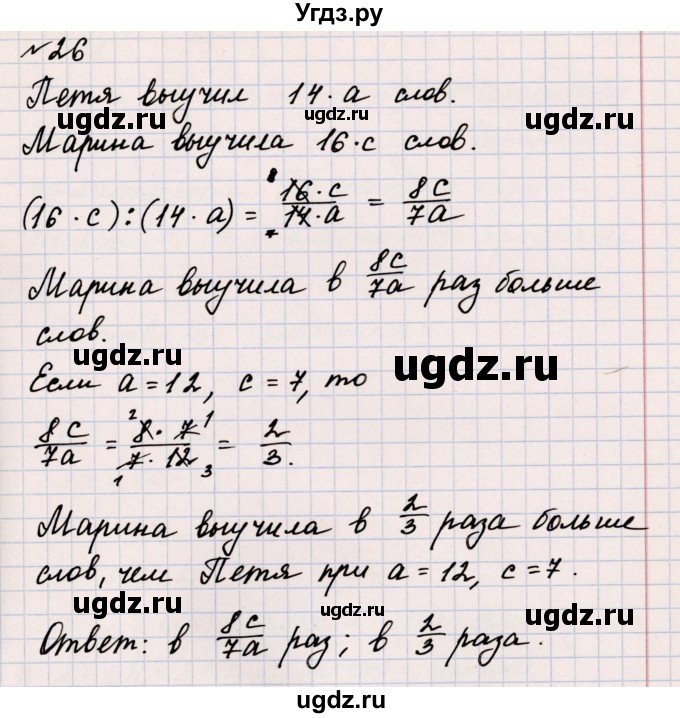 Угдз.ру
№26
Петя выучил 14·a слов.
ugdz.ru ugdz.ru ugdz.ru
Марина выучила 16·c слов.
(16·c):(14·a) = 8 16·c / 14·a 7 = 8c / 7a
ugdz.ru ugdz.ru
Марина выучила в 8c/7a раз больше
слов.
ugdz.ru ugdz.ru ugdz.ru
Если a=12, c=7, то
8c/7a = 2 8·7 1 / 1 7·12 3 = 2/3.
ugdz.ru ugdz.ru
Марина выучила в 2/3 раза больше
ugdz.ru
слов, чем Петя при a=12, c=7.
ugdz.ru ugdz.ru ugdz.ru
Ответ: в 8c/7a раз; в 2/3 раза.
ugdz.ru ugdz.ru
ugdz.ru